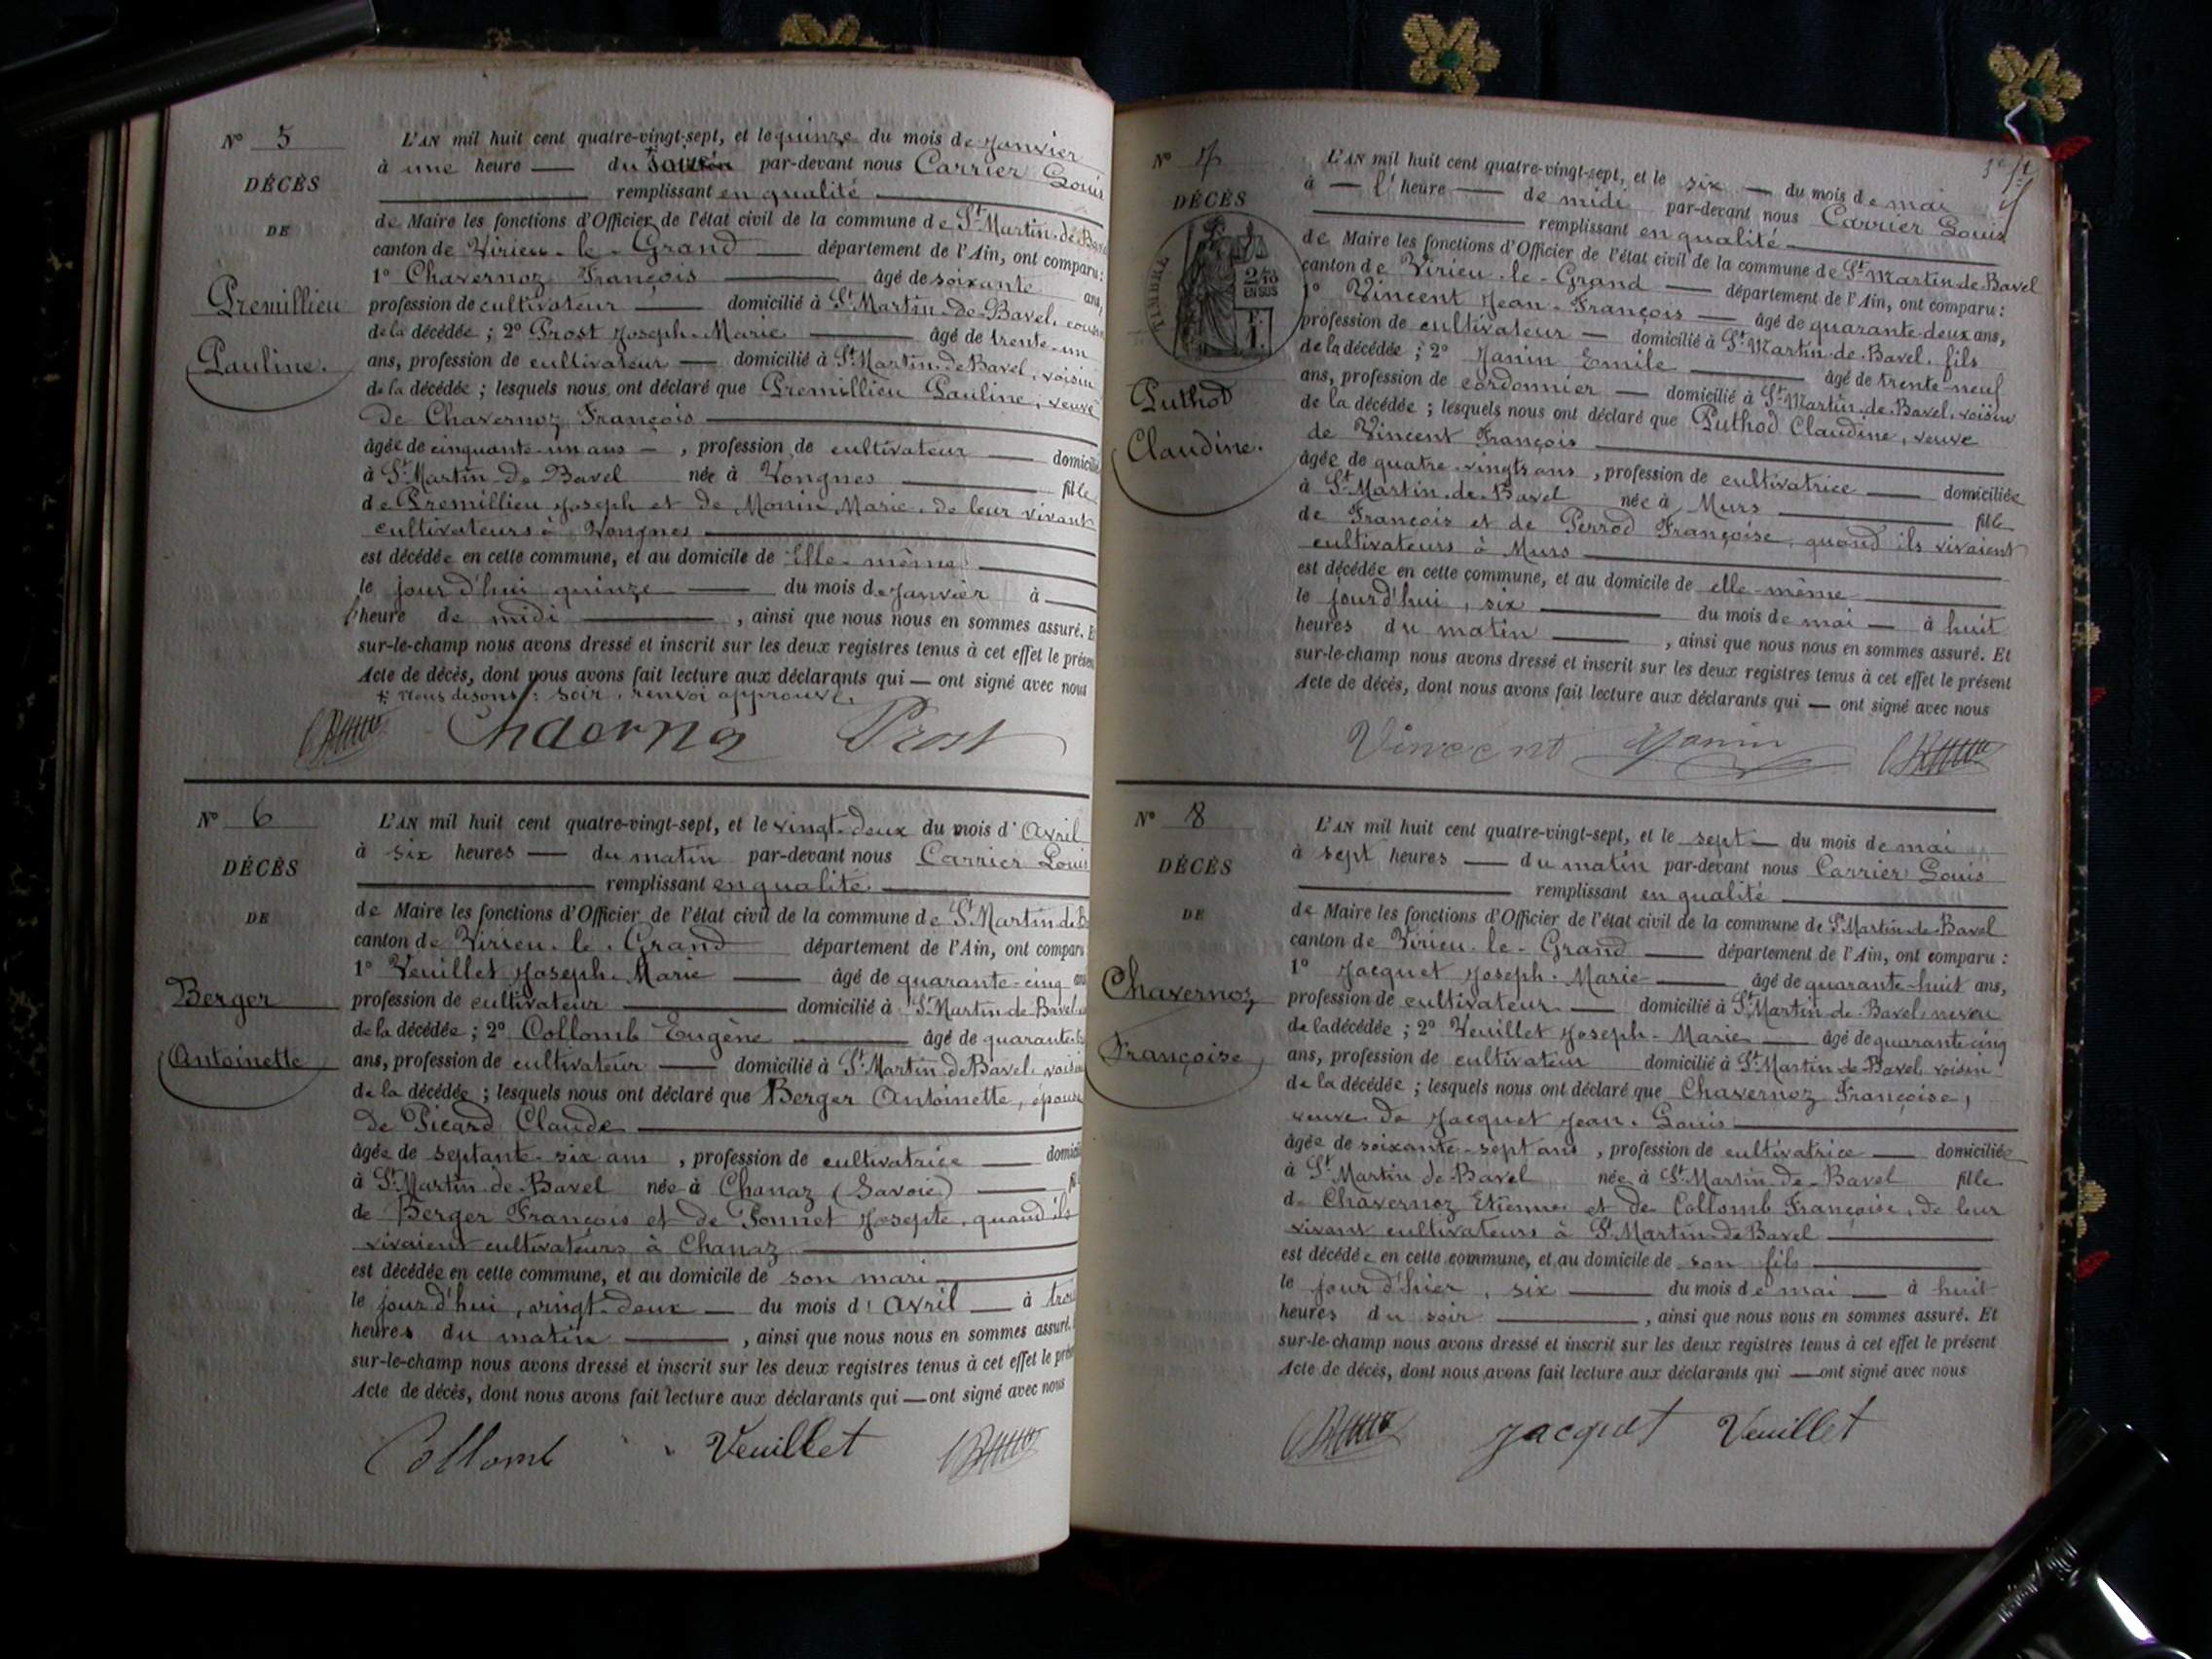 N° 5
DÉCÈS
DE
Premillieu
Pauline.
L'AN mil huit cent quatre-vingt-sept, et le quinze du mois de Janvier
à une heure — du par-devant nous Carrier Louis
remplissant en qualité
de Maire les fonctions d'Officier de l'état civil de la commune de St Martin-de-Bavel
canton de Virieu-le-Grand — département de l'Ain, ont comparu :
1° Chavernoz François — âgé de soixante ans,
profession de cultivateur — domicilié à St Martin-de-Bavel,
de la décédée ; 2° Prost Joseph-Marie — âgé de trente-un
ans, profession de cultivateur — domicilié à St Martin-de-Bavel, voisin
de la décédée ; lesquels nous ont déclaré que Premillieu Pauline, veuve
de Chavernoz François
âgée de cinquante-un ans —, profession de cultivateur — domicilié
à St Martin-de-Bavel née à Vongnes — fille
de Premillieu Joseph et de Monin Marie, de leur vivant
cultivateurs à Vongnes
est décédée en cette commune, et au domicile de elle-même
le jourd'hui quinze — du mois de Janvier à —
l'heure de midi —, ainsi que nous nous en sommes assuré. Et
sur-le-champ nous avons dressé et inscrit sur les deux registres tenus à cet effet le présent
Acte de décès, dont nous avons fait lecture aux déclarants qui — ont signé avec nous
* Nous disons : soir, renvoi approuvé.
Prost
N° 6
DÉCÈS
DE
Berger
Antoinette
L'AN mil huit cent quatre-vingt-sept, et le vingt-deux du mois d'Avril
à six heures — du matin par-devant nous Carrier Louis
remplissant en qualité
de Maire les fonctions d'Officier de l'état civil de la commune de St Martin-de-B
canton de Virieu-le-Grand département de l'Ain, ont comparu
1° Veuillet Joseph-Marie — âgé de quarante-cinq ans
profession de cultivateur — domicilié à St Martin-de-Bavel
de la décédée ; 2° Collomb Eugène — âgé de quarante
ans, profession de cultivateur — domicilié à St Martin-de-Bavel, voisin
de la décédée ; lesquels nous ont déclaré que Berger Antoinette, épouse
de Picard Claude
âgée de septante-six ans, profession de cultivatrice — domici
à St Martin-de-Bavel née à Chanaz (Savoie) — fi
de Berger François et de Josepte, quand ils
vivaient cultivateurs à Chanaz
est décédée en cette commune, et au domicile de son mari
le jourd'hui, vingt-deux — du mois d'Avril — à trois
heures du matin —, ainsi que nous nous en sommes assuré.
sur-le-champ nous avons dressé et inscrit sur les deux registres tenus à cet effet le prés
Acte de décès, dont nous avons fait lecture aux déclarants qui — ont signé avec nous
Collomb Veuillet
N° 7
DÉCÈS
TIMBRE
2/10
EN SUS
Puthod
Claudine.
L'AN mil huit cent quatre-vingt-sept, et le six — du mois de mai
à — l'heure — de midi par-devant nous Carrier Louis
remplissant en qualité
de Maire les fonctions d'Officier de l'état civil de la commune de St Martin-de-Bavel
canton de Virieu-le-Grand — département de l'Ain, ont comparu :
1° Vincent Jean-François — âgé de quarante-deux ans,
profession de cultivateur — domicilié à St Martin-de-Bavel, fils
de la décédée ; 2° Janin Emile — âgé de trente-neuf
ans, profession de cordonnier — domicilié à St Martin-de-Bavel, voisin
de la décédée ; lesquels nous ont déclaré que Puthod Claudine, veuve
de Vincent François
âgée de quatre-vingts ans, profession de cultivatrice — domiciliée
à St Martin-de-Bavel née à Murs — fille
de François et de Perrod Françoise, quand ils vivaient
cultivateurs à Murs
est décédée en cette commune, et au domicile de elle-même
le jourd'hui, six — du mois de mai — à huit
heures du matin —, ainsi que nous nous en sommes assuré. Et
sur-le-champ nous avons dressé et inscrit sur les deux registres tenus à cet effet le présent
Acte de décès, dont nous avons fait lecture aux déclarants qui — ont signé avec nous
Vincent Janin
N° 8
DÉCÈS
DE
Chavernoz
Françoise
L'AN mil huit cent quatre-vingt-sept, et le sept — du mois de mai
à sept heures — du matin par-devant nous Carrier Louis
remplissant en qualité
de Maire les fonctions d'Officier de l'état civil de la commune de St Martin-de-Bavel
canton de Virieu-le-Grand — département de l'Ain, ont comparu :
1° Jacquet Joseph-Marie — âgé de quarante-huit ans,
profession de cultivateur — domicilié à St Martin-de-Bavel, neveu
de la décédée ; 2° Veuillet Joseph-Marie — âgé de quarante-cinq
ans, profession de cultivateur domicilié à St Martin-de-Bavel, voisin
de la décédée ; lesquels nous ont déclaré que Chavernoz Françoise,
veuve de Jacquet Jean-Louis
âgée de soixante-sept ans, profession de cultivatrice — domiciliée
à St Martin-de-Bavel née à St Martin-de-Bavel fille
de Chavernoz Etienne et de Collomb Françoise, de leur
vivant cultivateurs à St Martin-de-Bavel
est décédée en cette commune, et au domicile de son fils
le jour d'hier, six — du mois de mai — à huit
heures du soir —, ainsi que nous nous en sommes assuré. Et
sur-le-champ nous avons dressé et inscrit sur les deux registres tenus à cet effet le présent
Acte de décès, dont nous avons fait lecture aux déclarants qui — ont signé avec nous
Jacquet Veuillet